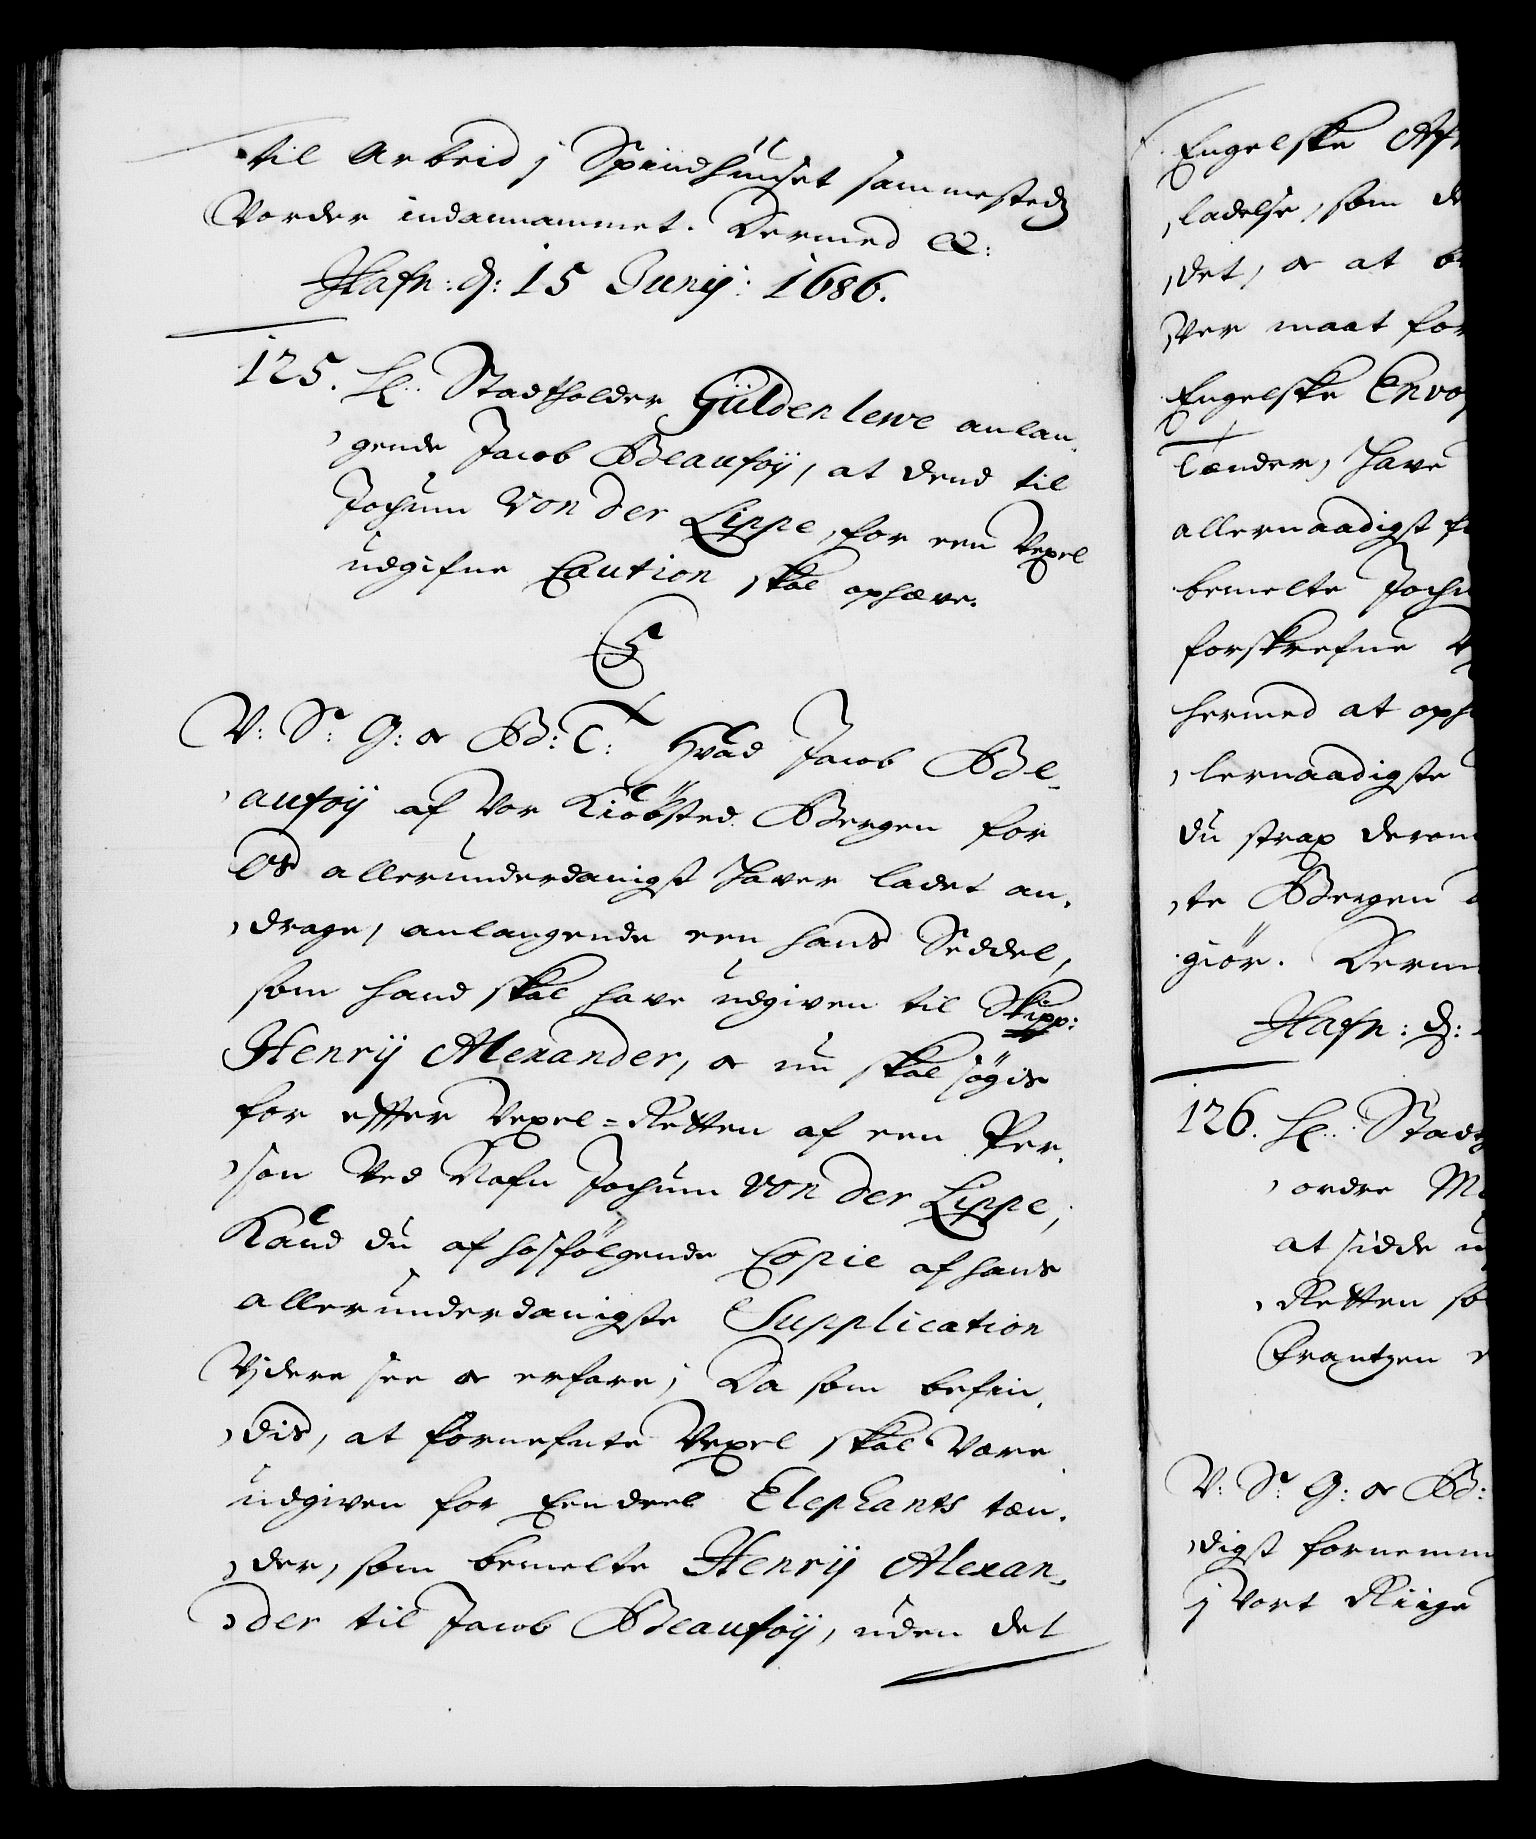 til Arbeid j Spindhuuset sammesteds
Vorder indannammet. Dermed &:
Hafn: d: 15 Junij: 1686.
125. Hr: Stadtholder Güldenlewe anlan-
gende Jacob Beaufoÿ, at dend til
Jochum Von der Lippe, for een Vexel
udgifne Caution skal ophæve.
C5
V: Sr: G: og B: T: Hvad Jacob Be-
aufoÿ af Vor Kiöbsted Bergen for
Os allerunderdanigst haver ladet an-
drage, anlangende een hans Seddel,
som hand skal have udgiven til Skipp:
Henrÿ Alexander, og nu skal søgis
for effter Vexel=Retten af een Per-
son Ved Nafn Jochum von der Lippe,
Kand du af hosfölgende Copie af hans
allerunderdanigste Supplication
Vjdere see og erfare; Da som befin-
dis, at fornefnte Vexel skal Være
udgiven for Eendeel Elephants tæn-
der, som bemelte Henrÿ Alexan-
der til Jacob Beaufoÿ, uden det
Engelske Af
ladelse, som de
det, og at be
Ver maat for
Engelske Envoy
Tænder, have
allernaadigst f
bemelte Jochu
forskrefne V
hermed at oph
lernaadigste
du strax deren
te Bergen
giör. Derm
Hafn: d:
126. Hr: Stadt
ordre M
at sidde u
Retten so
Frantzen
V: Sr: G: og B:
digst fornemm
j Vort Riige